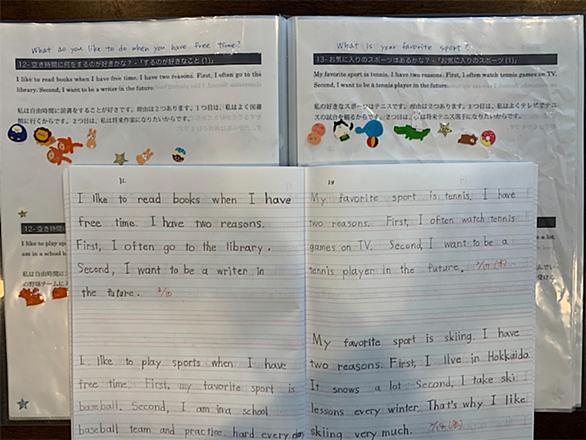 What do you like to do when you have free time?
12- 空き時間に何をするのが好きかな？-「するのが好きなこと (1)」
I like to read books when I have free time. I have two reasons. First, I often go to the
library. Second, I want to be a writer in the future.
私は自由時間に読書をすることが好きです。理由は2つあります。1つ目は、私はよく図書
館に行くからです。2つ目は、私は将来作家になりたいからです。
12- 空き時間
I like to play spo
am in a school b
私は自由時間に
の野球チームに
What is your favorite sport?
13- お気に入りのスポーツはあるかな？-「お気に入りのスポーツ (1)」
My favorite sport is tennis. I have two reasons. First, I often watch tennis games on TV.
Second, I want to be a tennis player in the future.
私の好きなスポーツはテニスです。理由は2つあります。1つ目は、私はよくテレビでテニ
スの試合を観るからです。2つ目は、私は将来テニス選手になりたいからです。
a lot.
12
I like to read books when I have
free time. I have two reasons.
First, I often go to the library.
Second, I want to be a writer in
the future.
I like to play sports when I have
free time. First, my favorite sport is
baseball. Second, I am in a school
baseball team and practice hard every day
My favorite sport is tennis. I have
two reasons. First, I often watch tennis
games on TV. Second, I want to be a
tennis player in the future.
My favorite sport is skiing. I have
two reasons. First, I live in Hokkaido.
It snows a lot. Second, I take ski
lessons every winter. That's why I like
skiing very much.